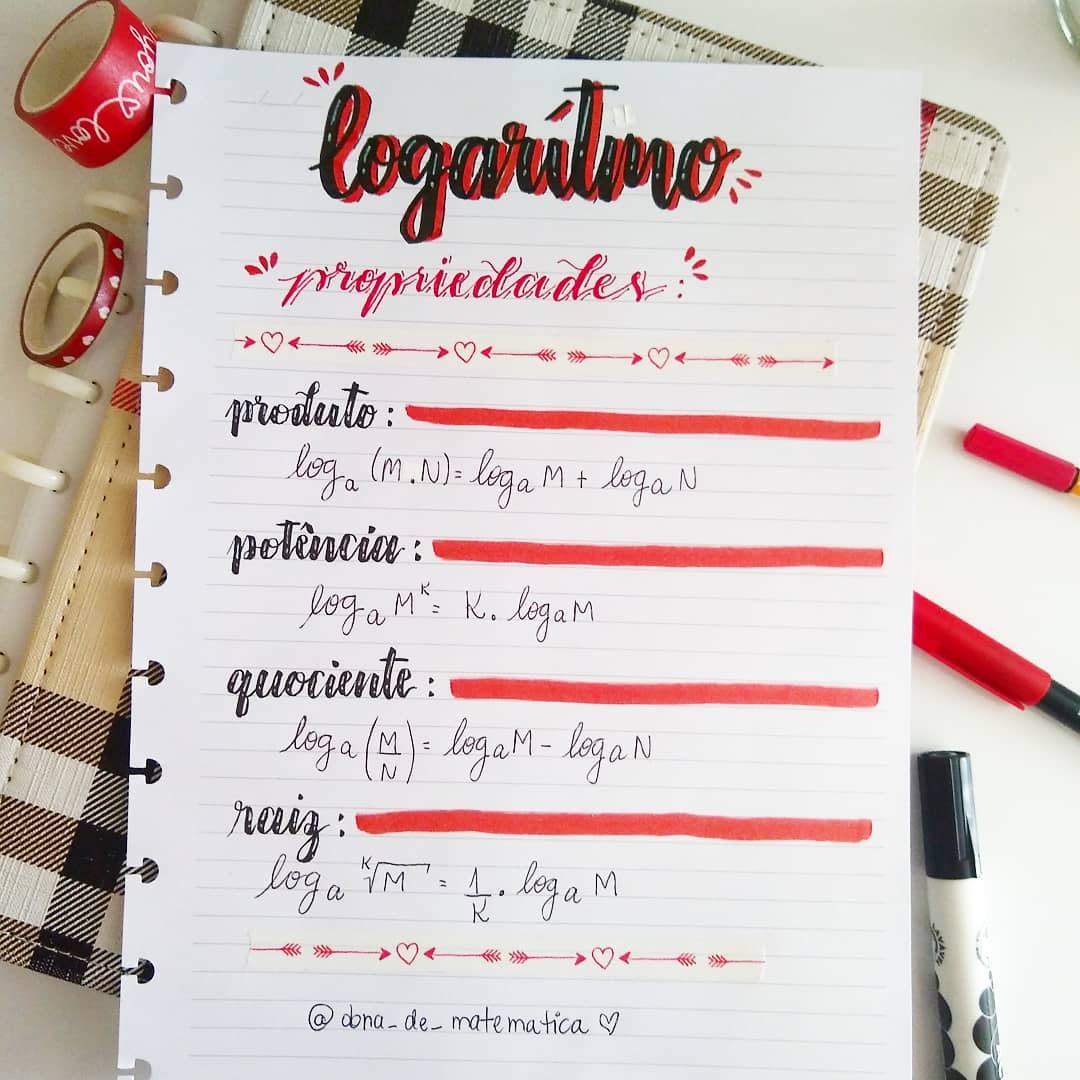 you
love
logarítmo
propriedades:
produto:
logₐ (M.N) = logₐ M + logₐ N
potência:
logₐ Mᴷ = K. logₐ M
quociente:
logₐ (M/N) = logₐ M - logₐ N
raiz:
logₐ ᴷ√M = 1/K . logₐ M
@dona_de_matematica ♡